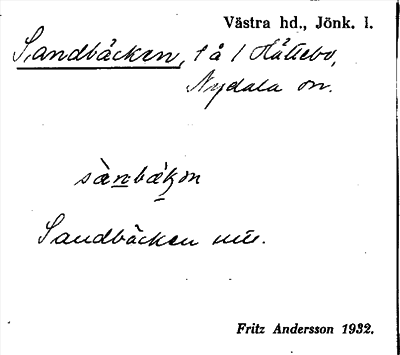 Västra hd., Jönk. l.
Sandbäcken, l å l Hållebo,
Nydala sn.
sànbäkɔn
Sandbäcken mu.
Fritz Andersson 1932.